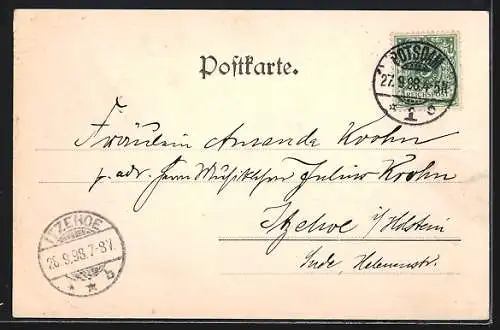 Postkarte.
POTSDAM
27.9.98.4-5N.
* 1 c
REICHSPOST
Fräulein Amanda Krohn
p. adr. Herrn Musiklehrer Julius Krohn
Itzehoe i/Holstein
Sude, Helenenstr.
ITZEHOE
28.9.98.7-8V.
* * b